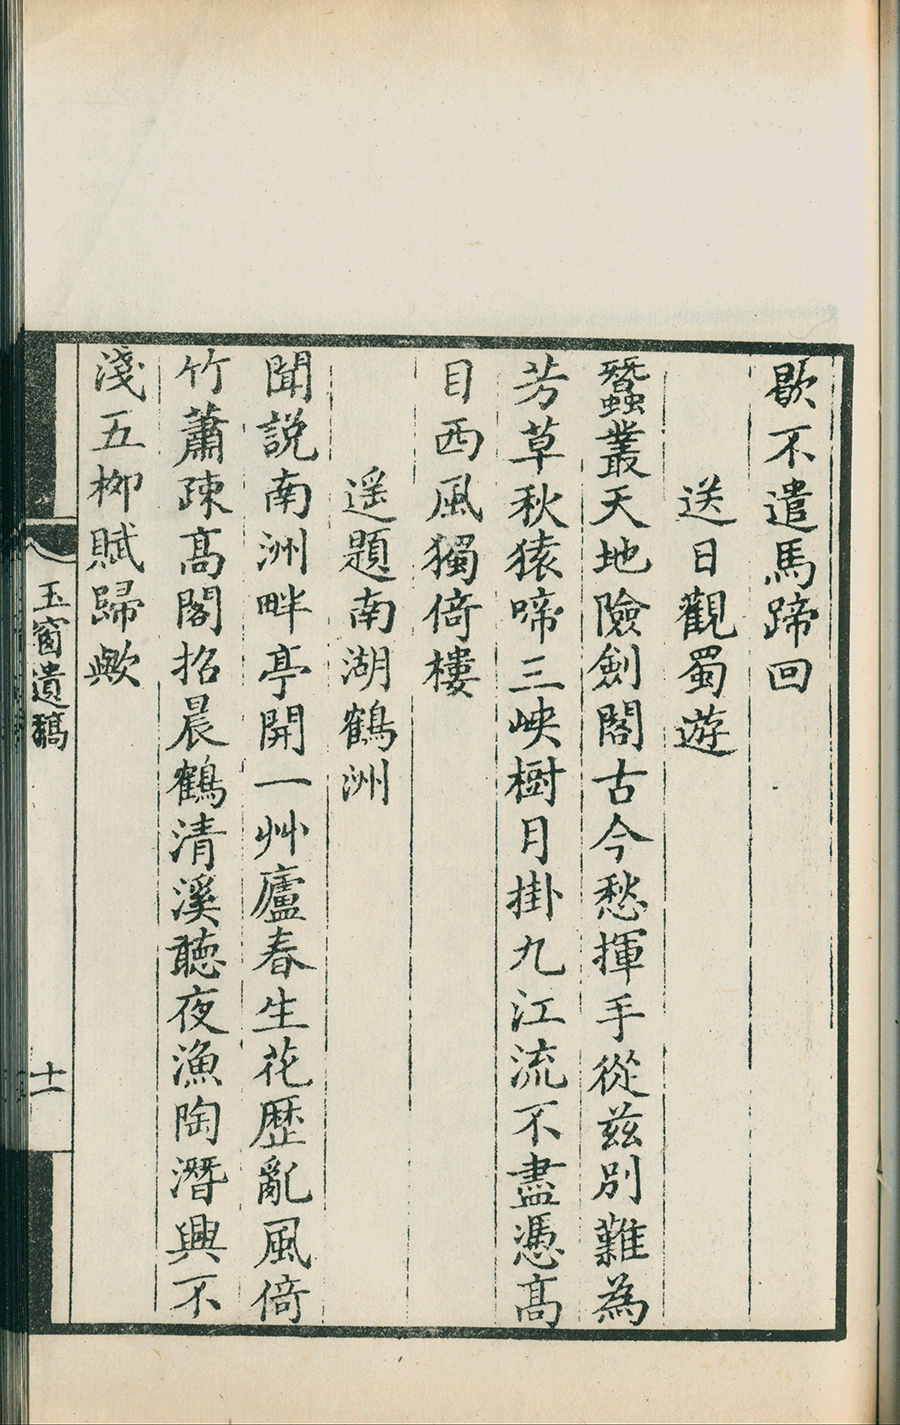 歇不遣馬蹄回
送日觀蜀遊
蠶叢天地險劍閣古今愁揮手從茲別難為
芳草秋猿啼三峽樹月掛九江流不盡憑高
目西風獨倚樓
遥題南湖鶴洲
聞説南洲畔亭開一艸廬春生花歴亂風倚
竹蕭疎高閣招晨鶴清溪聽夜漁陶潛興不
淺五栁賦歸歟
玉窗遺稿
十一